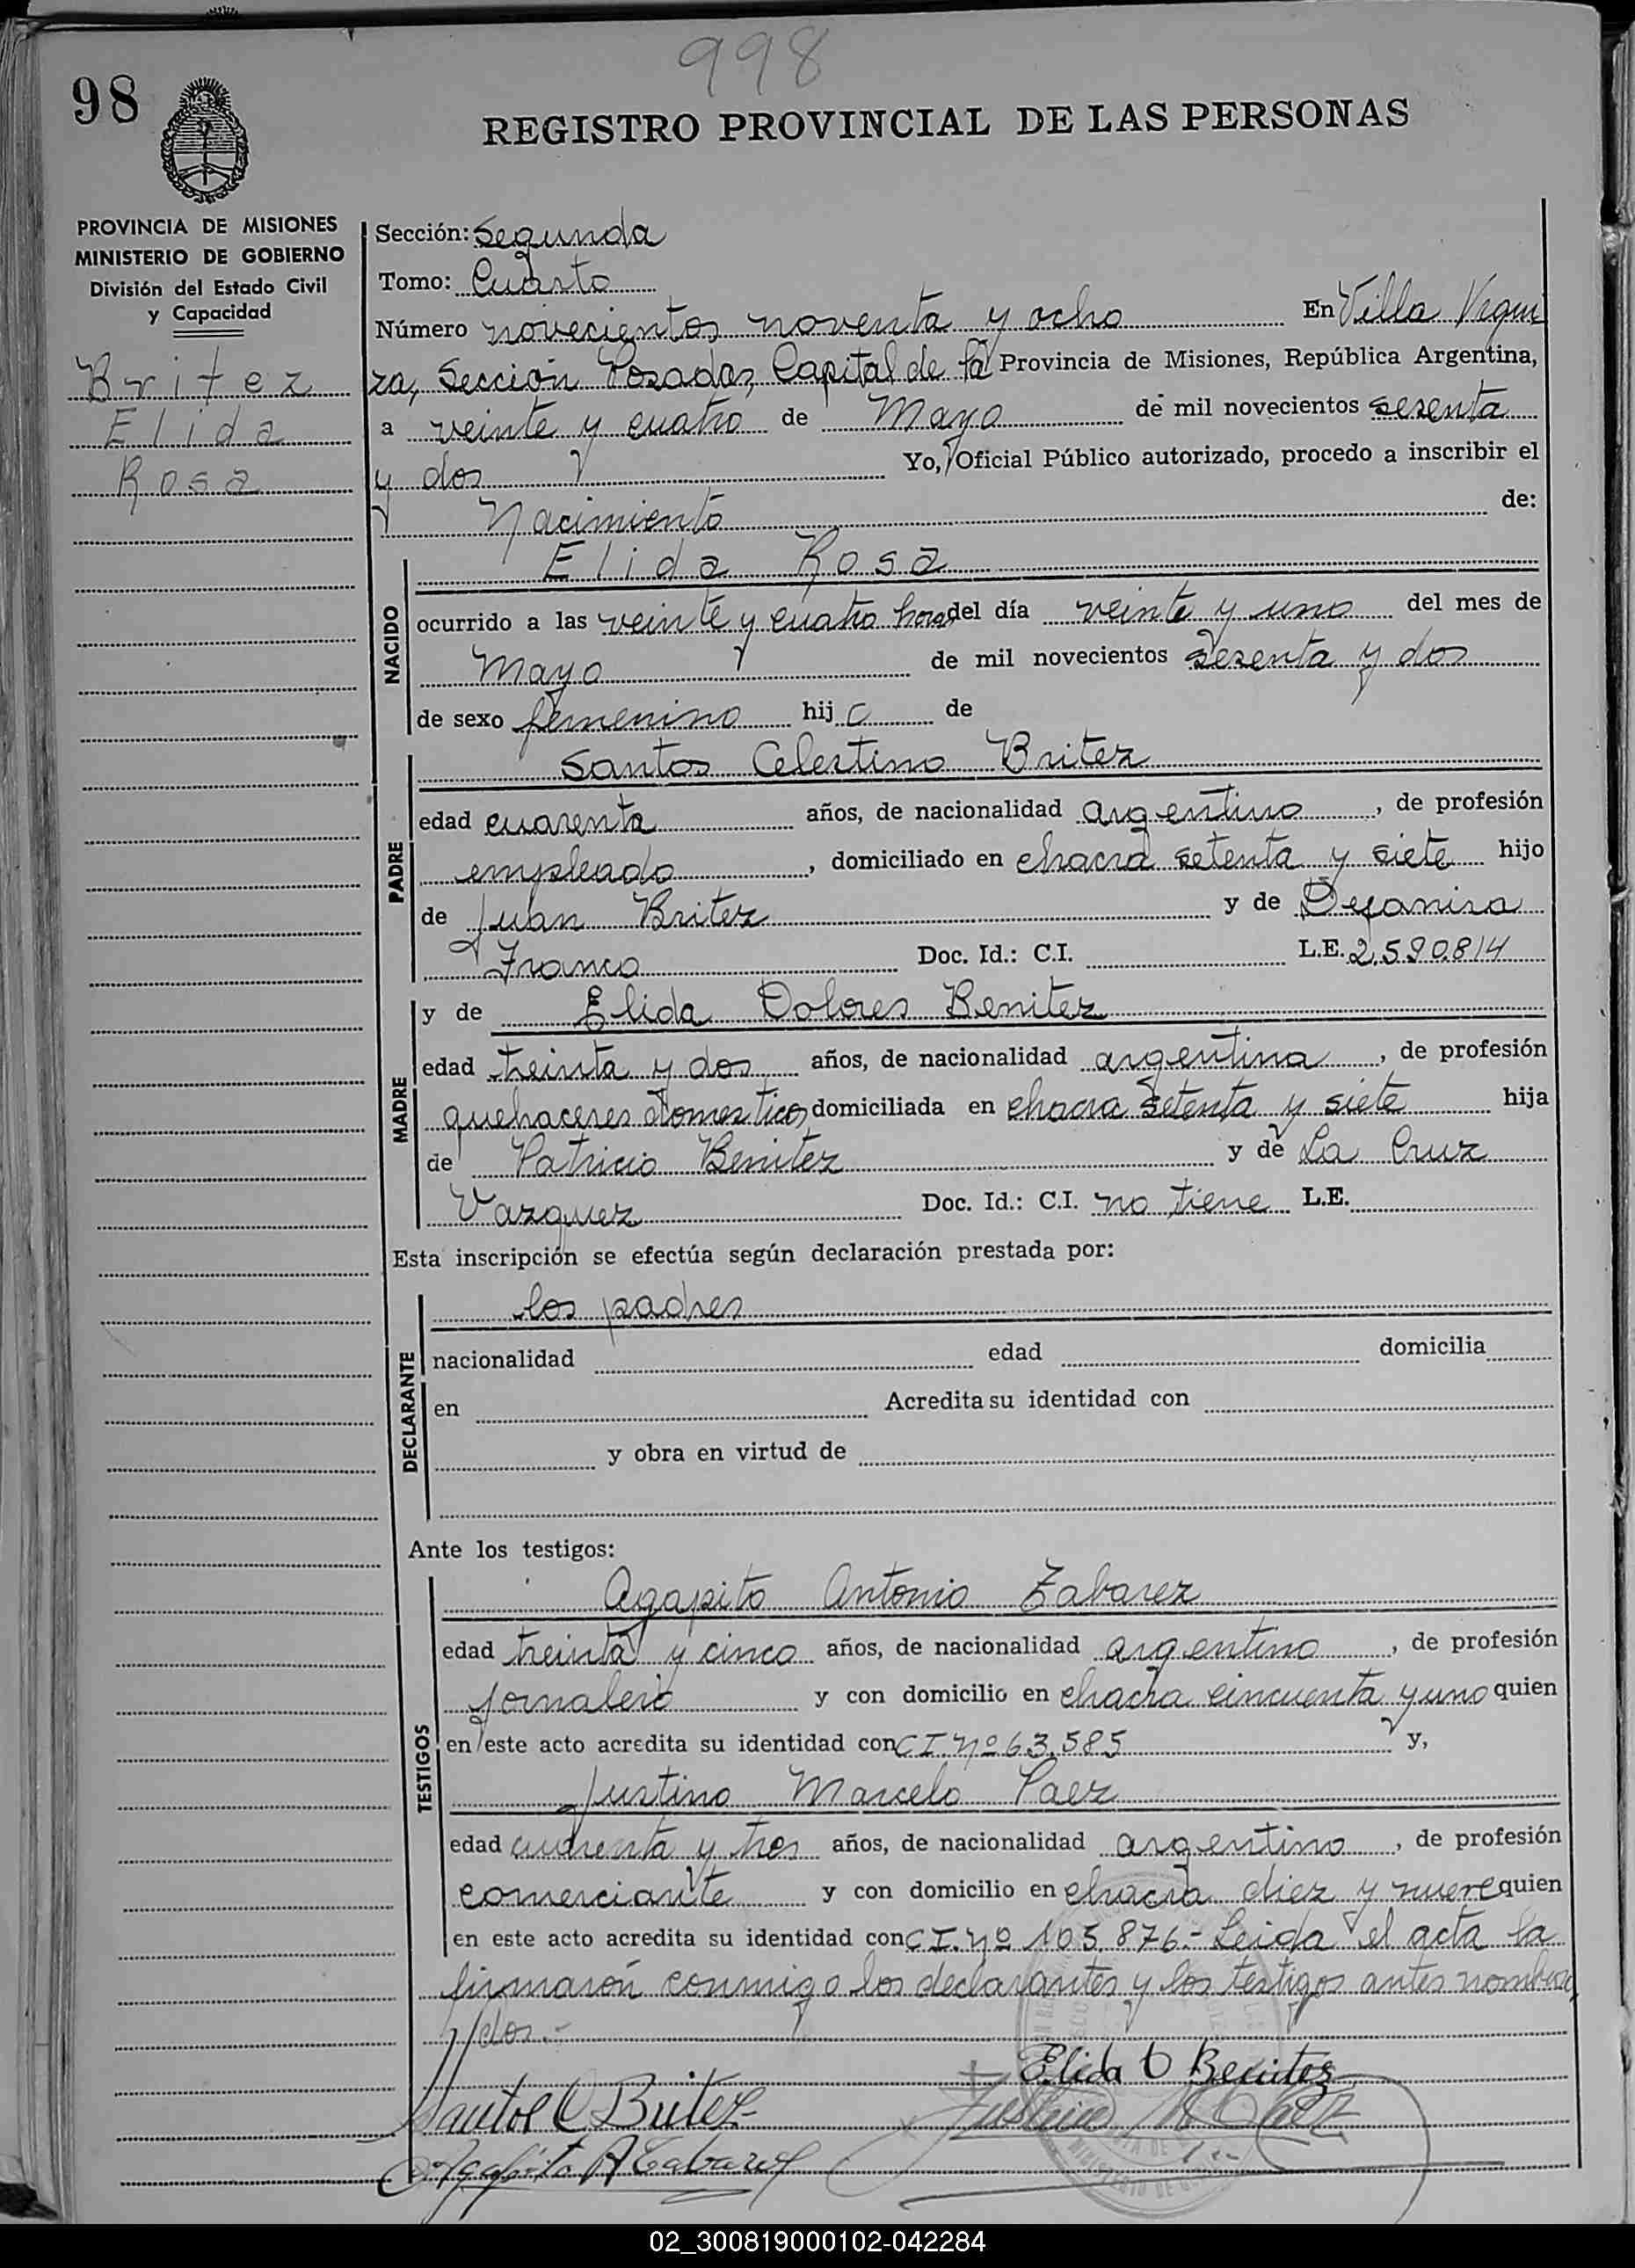 998
98
REGISTRO PROVINCIAL DE LAS PERSONAS
PROVINCIA DE MISIONES
MINISTERIO DE GOBIERNO
División del Estado Civil
y Capacidad
Britez
Elida
Rosa
Sección: Segunda
Tomo: Cuarto
Número novecientos noventa y ocho En Villa Vequi
za, Sección Posadas, Capital de la Provincia de Misiones, República Argentina,
a veinte y cuatro de Mayo de mil novecientos sesenta
y dos Yo, Oficial Público autorizado, procedo a inscribir el
Nacimiento de:
NACIDO
Elida Rosa
ocurrido a las veinte y cuatro horas del día veinte y uno del mes de
Mayo de mil novecientos sesenta y dos
de sexo femenino hij a de
PADRE
Santos Celestino Britez
edad cuarenta años, de nacionalidad argentino, de profesión
empleado, domiciliado en chacra setenta y siete hijo
de Juan Britez y de Dejanira
Franco Doc. Id.: C.I. L.E. 2.590.814
MADRE
y de Elida Dolores Benitez
edad treinta y dos años, de nacionalidad argentina, de profesión
quehaceres domesticos domiciliada en chacra setenta y siete hija
de Patricio Benitez y de La Cruz
Vazquez Doc. Id.: C.I. no tiene L.E.
Esta inscripción se efectúa según declaración prestada por:
DECLARANTE
los padres
nacionalidad edad domicilia
en Acredita su identidad con
y obra en virtud de
Ante los testigos:
TESTIGOS
Agapito Antonio Zabarez
edad treinta y cinco años, de nacionalidad argentino, de profesión
jornalero y con domicilio en chacra cincuenta y uno quien
en este acto acredita su identidad con C I. Nº 63.585 y,
Justino Marcelo Paez
edad cuarenta y tres años, de nacionalidad argentino, de profesión
comerciante y con domicilio en chacra diez y nueve quien
en este acto acredita su identidad con C I. Nº 105.876.- Leida el acta la
firmaron conmigo los declarantes y los testigos antes nombra
dos.-
Elida D Benitez
Santos C Britez
Agapito A Zabarez
02_300819000102-042284